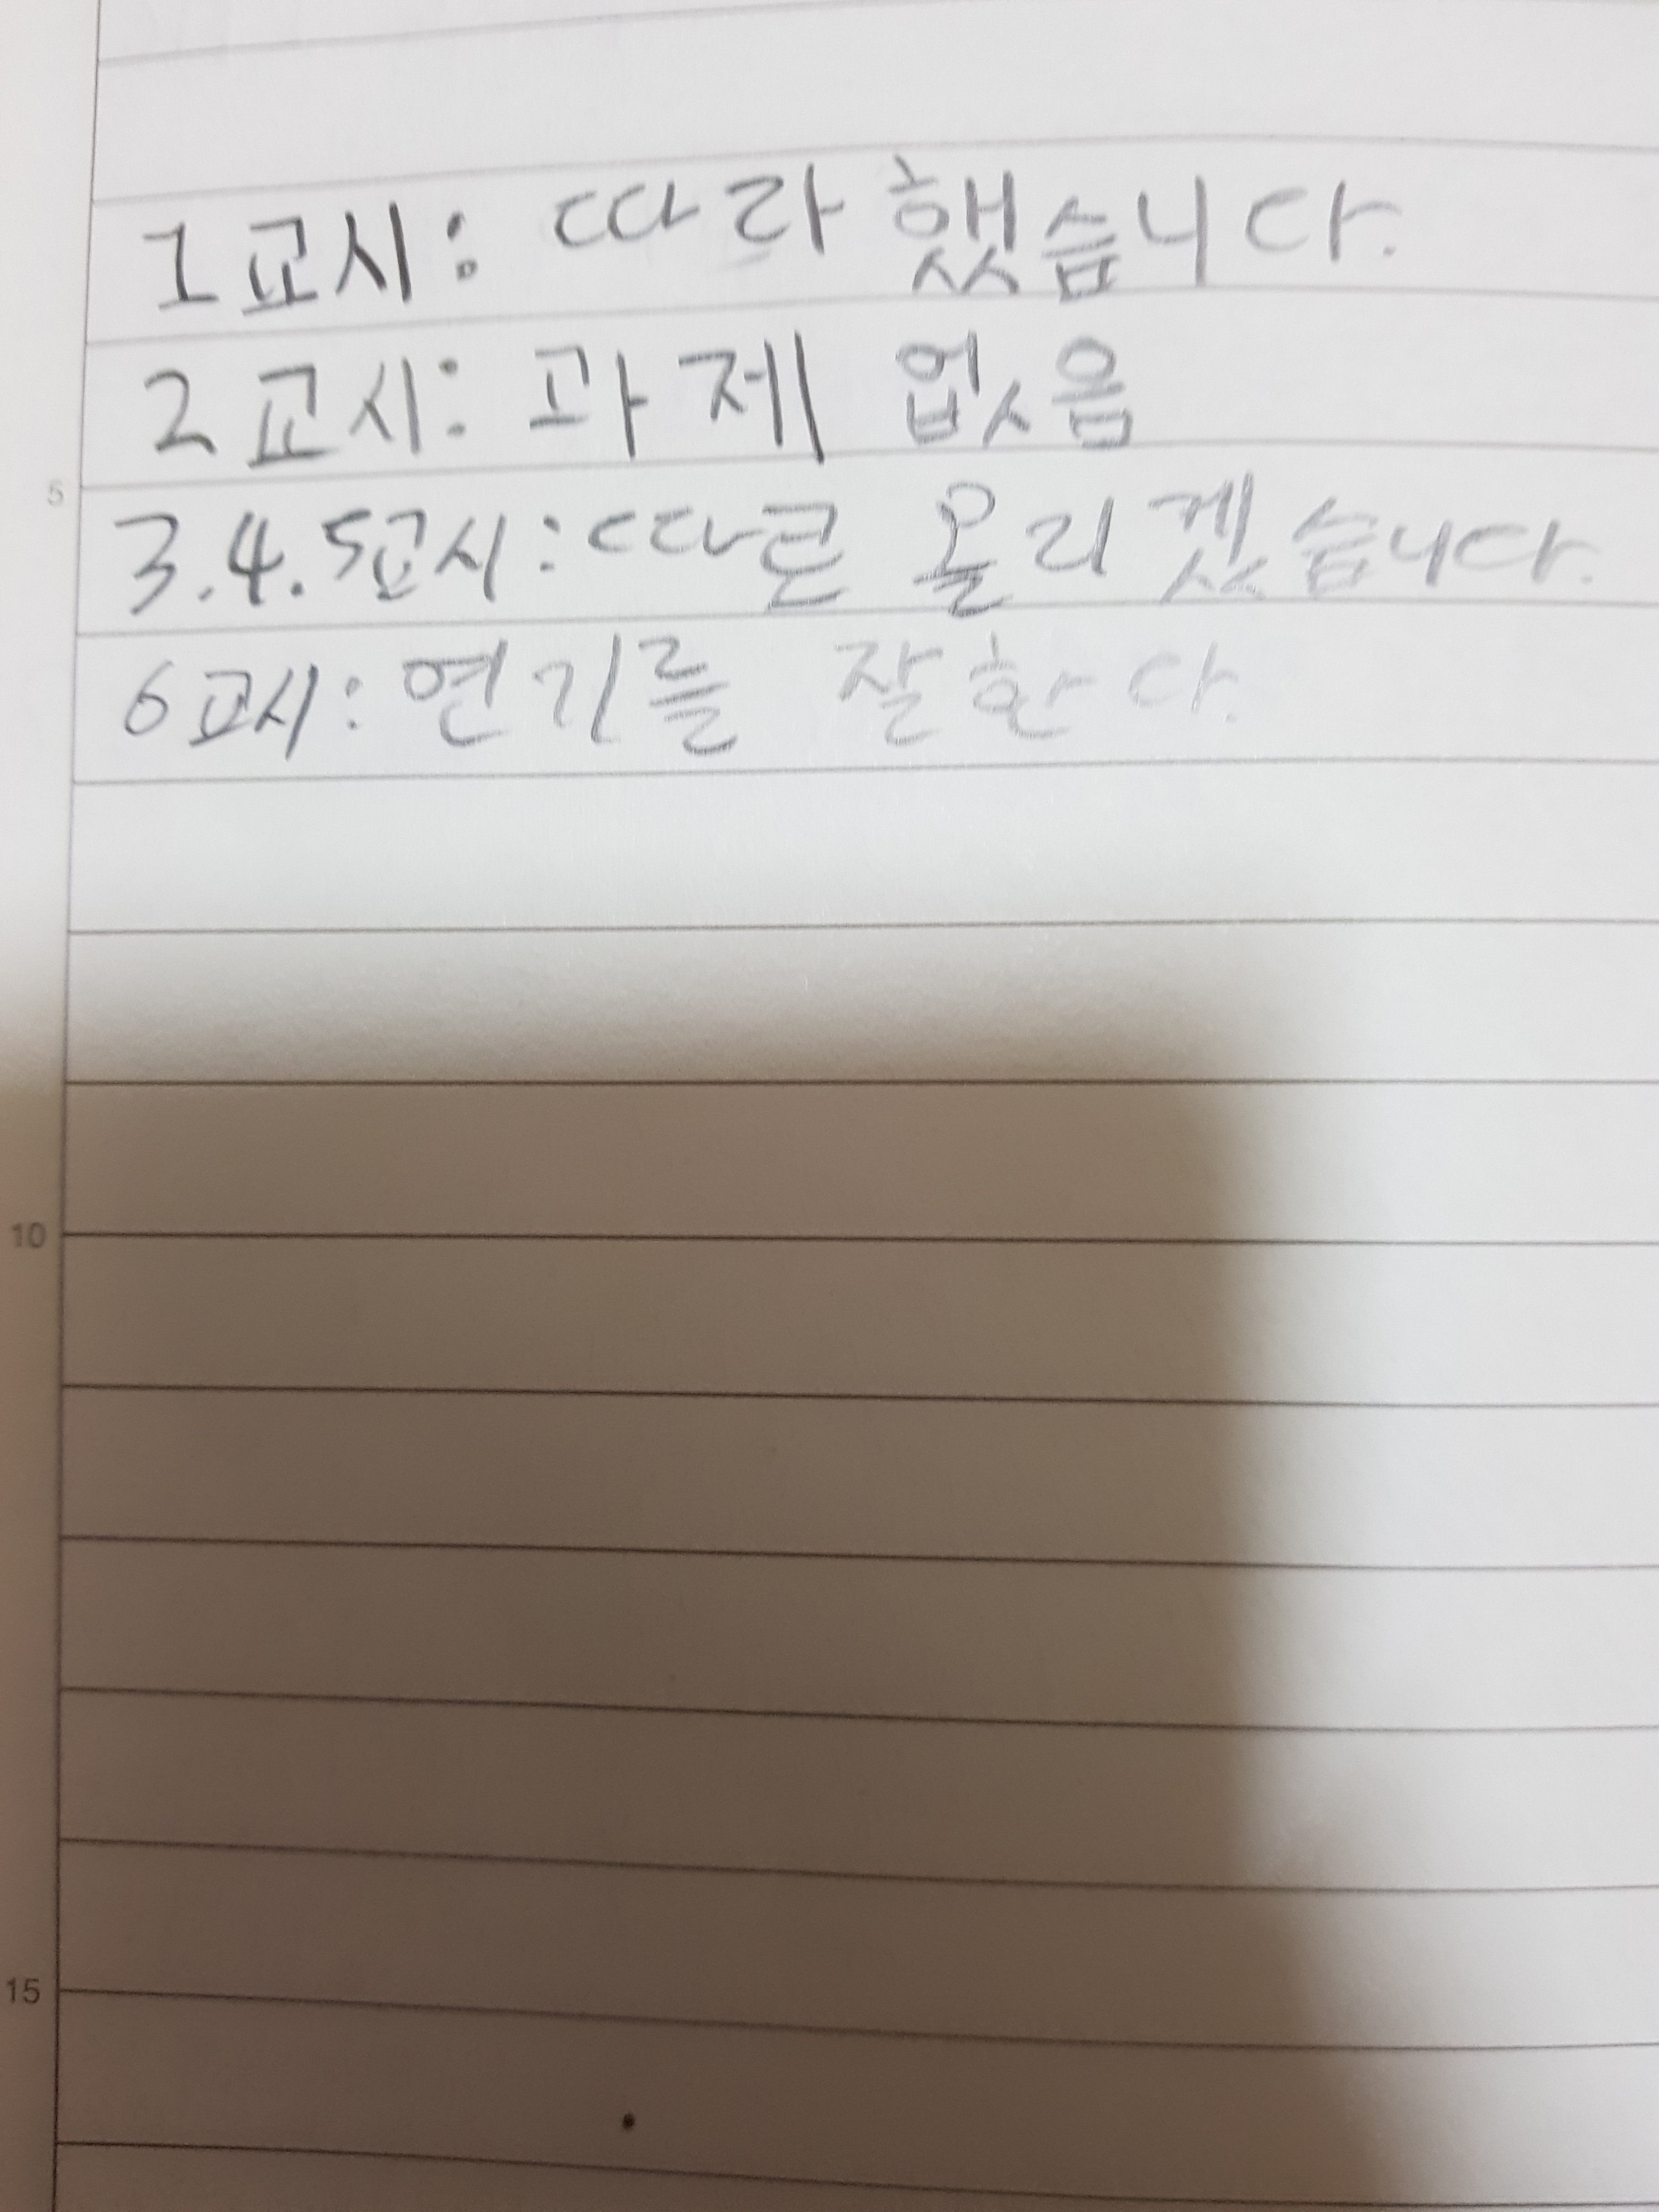 1교시: 따라 했습니다.
2교시: 과제 없음
5
3.4.5교시: 따로 올리겠습니다.
6교시: 연기를 잘한다.
10
15